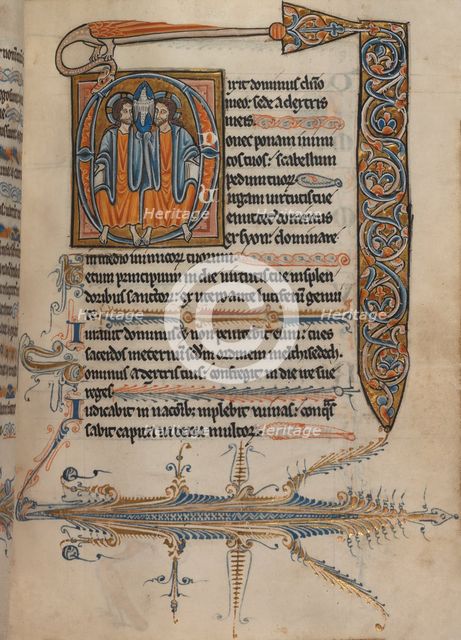 Dixit dominus dño
meo: sede a dextris
meis.
Donec ponam inimi
cos tuos: scabellum
pedum tuor.
Virgam virtutis tue
emittet dominus
ex syon: dominare
in medio inimicor tuorum
Tecum principium in die virtutis tue in splen
doribus sanctor: ex utero ante luciferum genui
te
Iuravit dominus et non penitebit eum: tu es
sacerdos in eternum ordinem melchisedech
Dominus a dextris tuis: confregit in die ire sue
reges.
Iudicabit in implebit ruinas:
sabit capita in terra multor.
Heritage
Heritage
Heritage
Heritage